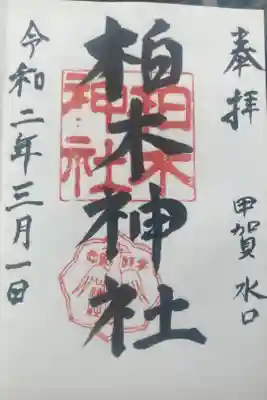 奉拝
甲賀 水口
柏木神社
柏木
神社
令和二年三月一日